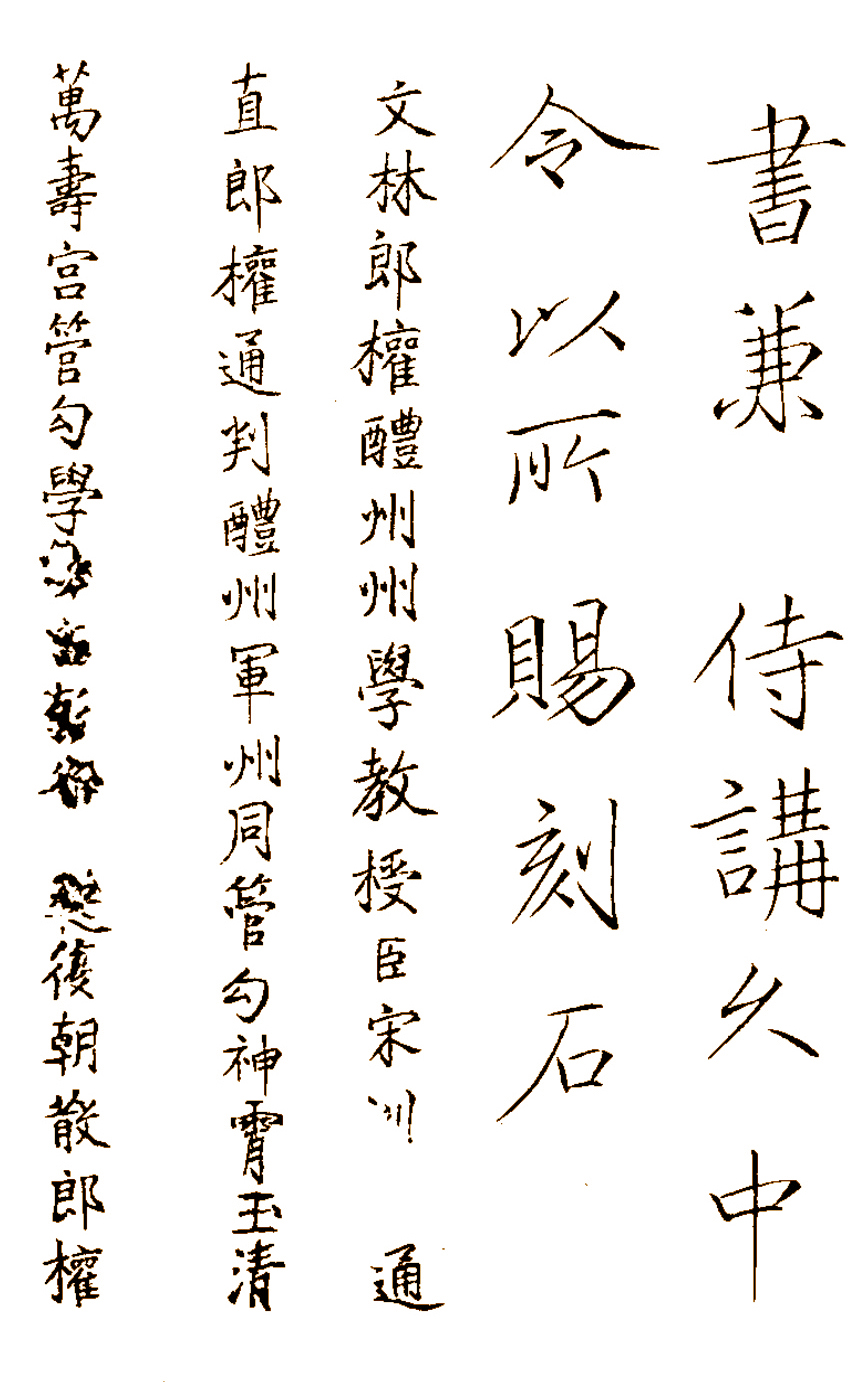 書兼侍講久中
令以所賜刻石
文林郎權醴州州學教授臣宋 通
直郎權通判醴州軍州同管勾神霄玉清
萬壽宮管勾學 復朝散郎權